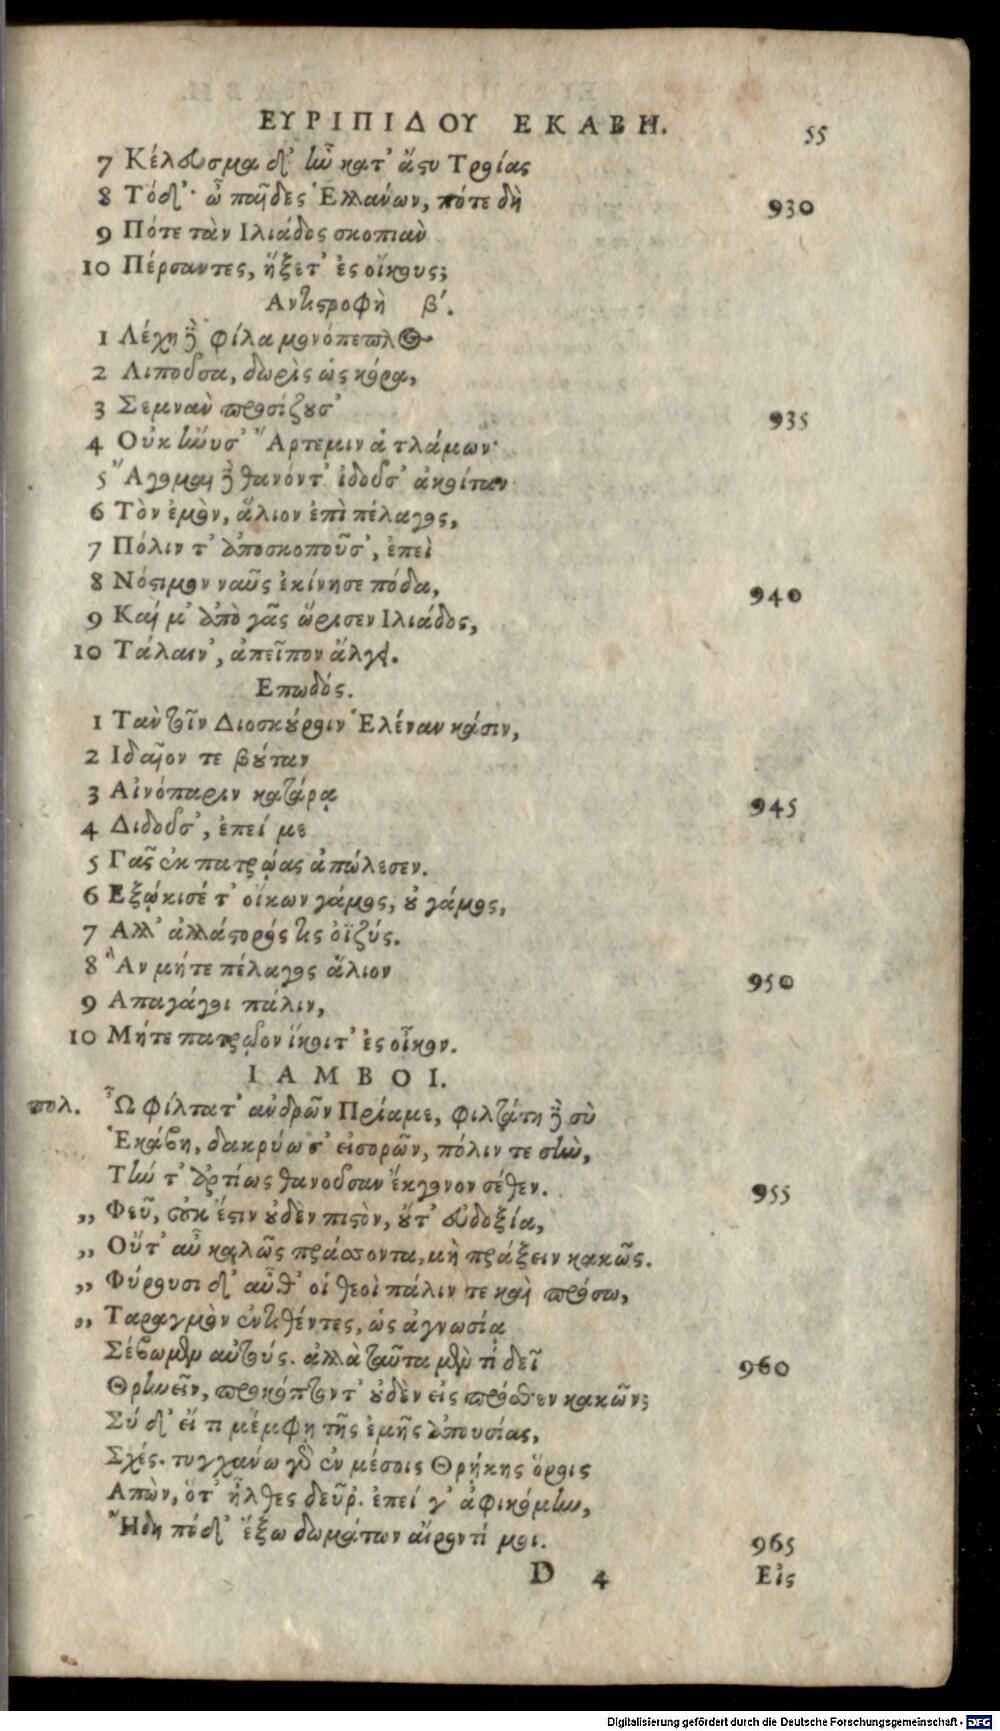 ΕΥΡΙΠΙΔΟΥ ΕΚΑΒΗ. 55
7 Κέλευσμα δ' ἦν κατ' ἄστυ Τροίας
8 Τόδ'· ὦ παῖδες Ἑλλάνων, πότε δὴ 930
9 Πότε τὰν Ιλιάδος σκοπιὰν
10 Πέρσαντες, ἥξετ' ἐς οἴκους;
Αντιστροφὴ β'.
1 Λέχη δὲ φίλα μονόπεπλος
2 Λιποῦσα, δωρὶς ὡς κόρα,
3 Σεμνὰν προσίζουσ' 935
4 Οὐκ ἤνυσ' Ἄρτεμιν ἁ τλάμων·
5 Ἄγομαι δὲ θανόντ' ἰδοῦσ' ἀκοίταν
6 Τὸν ἐμὸν, ἅλιον ἐπὶ πέλαγος,
7 Πόλιν τ' ἀποσκοποῦσ', ἐπεὶ
8 Νόστιμον ναῦς ἐκίνησε πόδα, 940
9 Καί μ' ἀπὸ γᾶς ὥρισεν Ιλιάδος,
10 Τάλαιν', ἀπεῖπον ἄλγει.
Επωδός.
1 Τὰν τοῖν Διοσκούροιν Ἑλέναν κάσιν,
2 Ιδαῖον τε βούταν
3 Αἰνόπαριν κατάρᾳ 945
4 Διδοῦσ', ἐπεί με
5 Γᾶς ἐκ πατρῴας ἀπώλεσεν.
6 Εξῴκισέ τ' οἴκων γάμος, οὐ γάμος,
7 Αλλ' ἀλλάστορός τις ὀϊζύς.
8 Ἃν μήτε πέλαγος ἅλιον 950
9 Απαγάγοι πάλιν,
10 Μήτε πατρῷον ἵκοιτ' ἐς οἶκον.
ΙΑΜΒΟΙ.
πολ. Ὦ φίλτατ' ἀνδρῶν Πρίαμε, φιλτάτη δὲ σὺ
Ἑκάβη, δακρύω σ' εἰσορῶν, πόλιν τε σὴν,
Τήν τ' ἀρτίως θανοῦσαν ἔκγονον σέθεν. 955
,, Φεῦ, οὐκ ἔστιν οὐδὲν πιστὸν, οὔτ' εὐδοξία,
,, Οὔτ' αὖ καλῶς πράσσοντα, μὴ πράξειν κακῶς.
,, Φύρουσι δ' αὖθ' οἱ θεοὶ πάλιν τε καὶ πρόσω,
,, Ταραγμὸν ἐντιθέντες, ὡς ἀγνωσίᾳ
Σέβωμεν αὐτούς. ἀλλὰ ταῦτα μὲν τί δεῖ 960
Θρηνεῖν, προκόπτοντ' οὐδὲν εἰς πρόσθεν κακῶν;
Σύ δ' εἴ τι μέμφῃ τῆς ἐμῆς ἀπουσίας,
Σχές. τυγχάνω γὰρ ἐν μέσοις Θρῄκης ὅροις
Απὼν, ὅτ' ἦλθες δεῦρ'. ἐπεί γ' ἀφικόμην,
Ἤδη πόδ' ἔξω δωμάτων αἴροντί μοι. 965
D 4 Εἰς
Digitalisierung gefördert durch die Deutsche Forschungsgemeinschaft - DFG